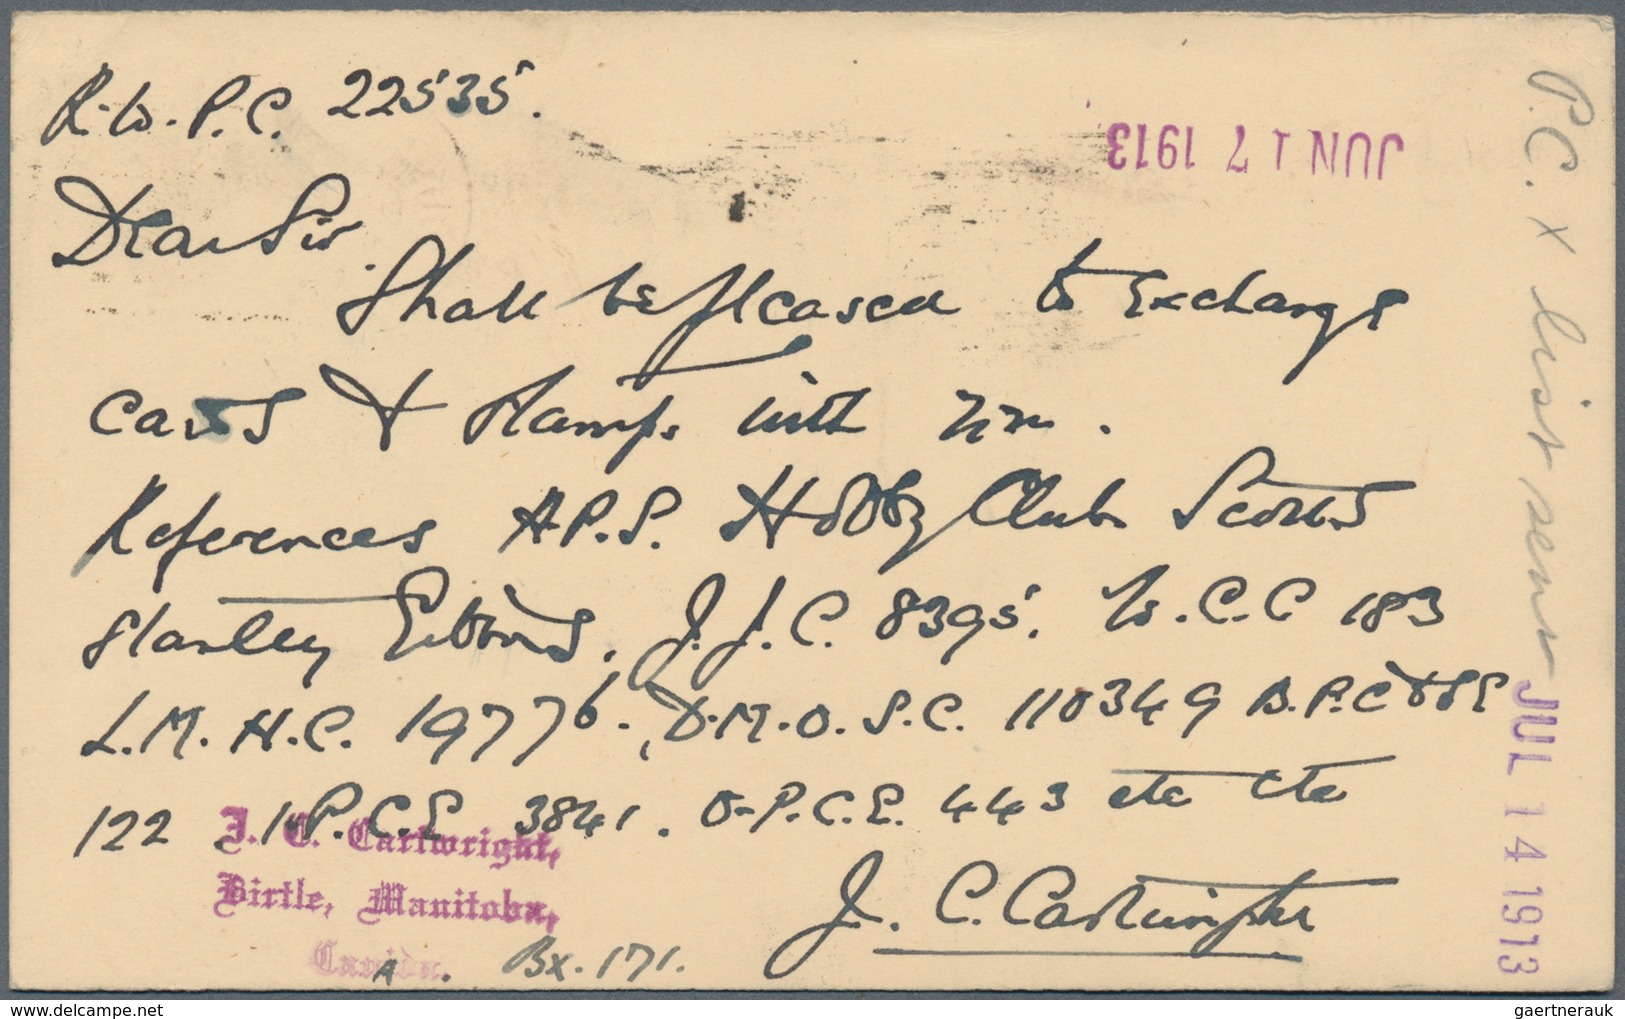 R.W.P.C. 22535.
JUN 17 1913
Dear Sir.
Shall be pleased to Exchange
Cards & Stamps with him.
References A.P.S. Hobby Club Scotts
Stanley Gibbons. J.J.C. 8395. W.C.C 183
L.M.H.C. 19776. D.M.O.S.C. 110349 B.P.C
122 I.P.C.E 3841. O.P.C.E. 443 etc etc
J. C. Cartwright,
Birtle, Manitoba,
Canada.
Bx. 171.
J. C. Cartwright
P.C. x list sent
JUL 14 1913
gaertnerauk @ www.delcampe.net